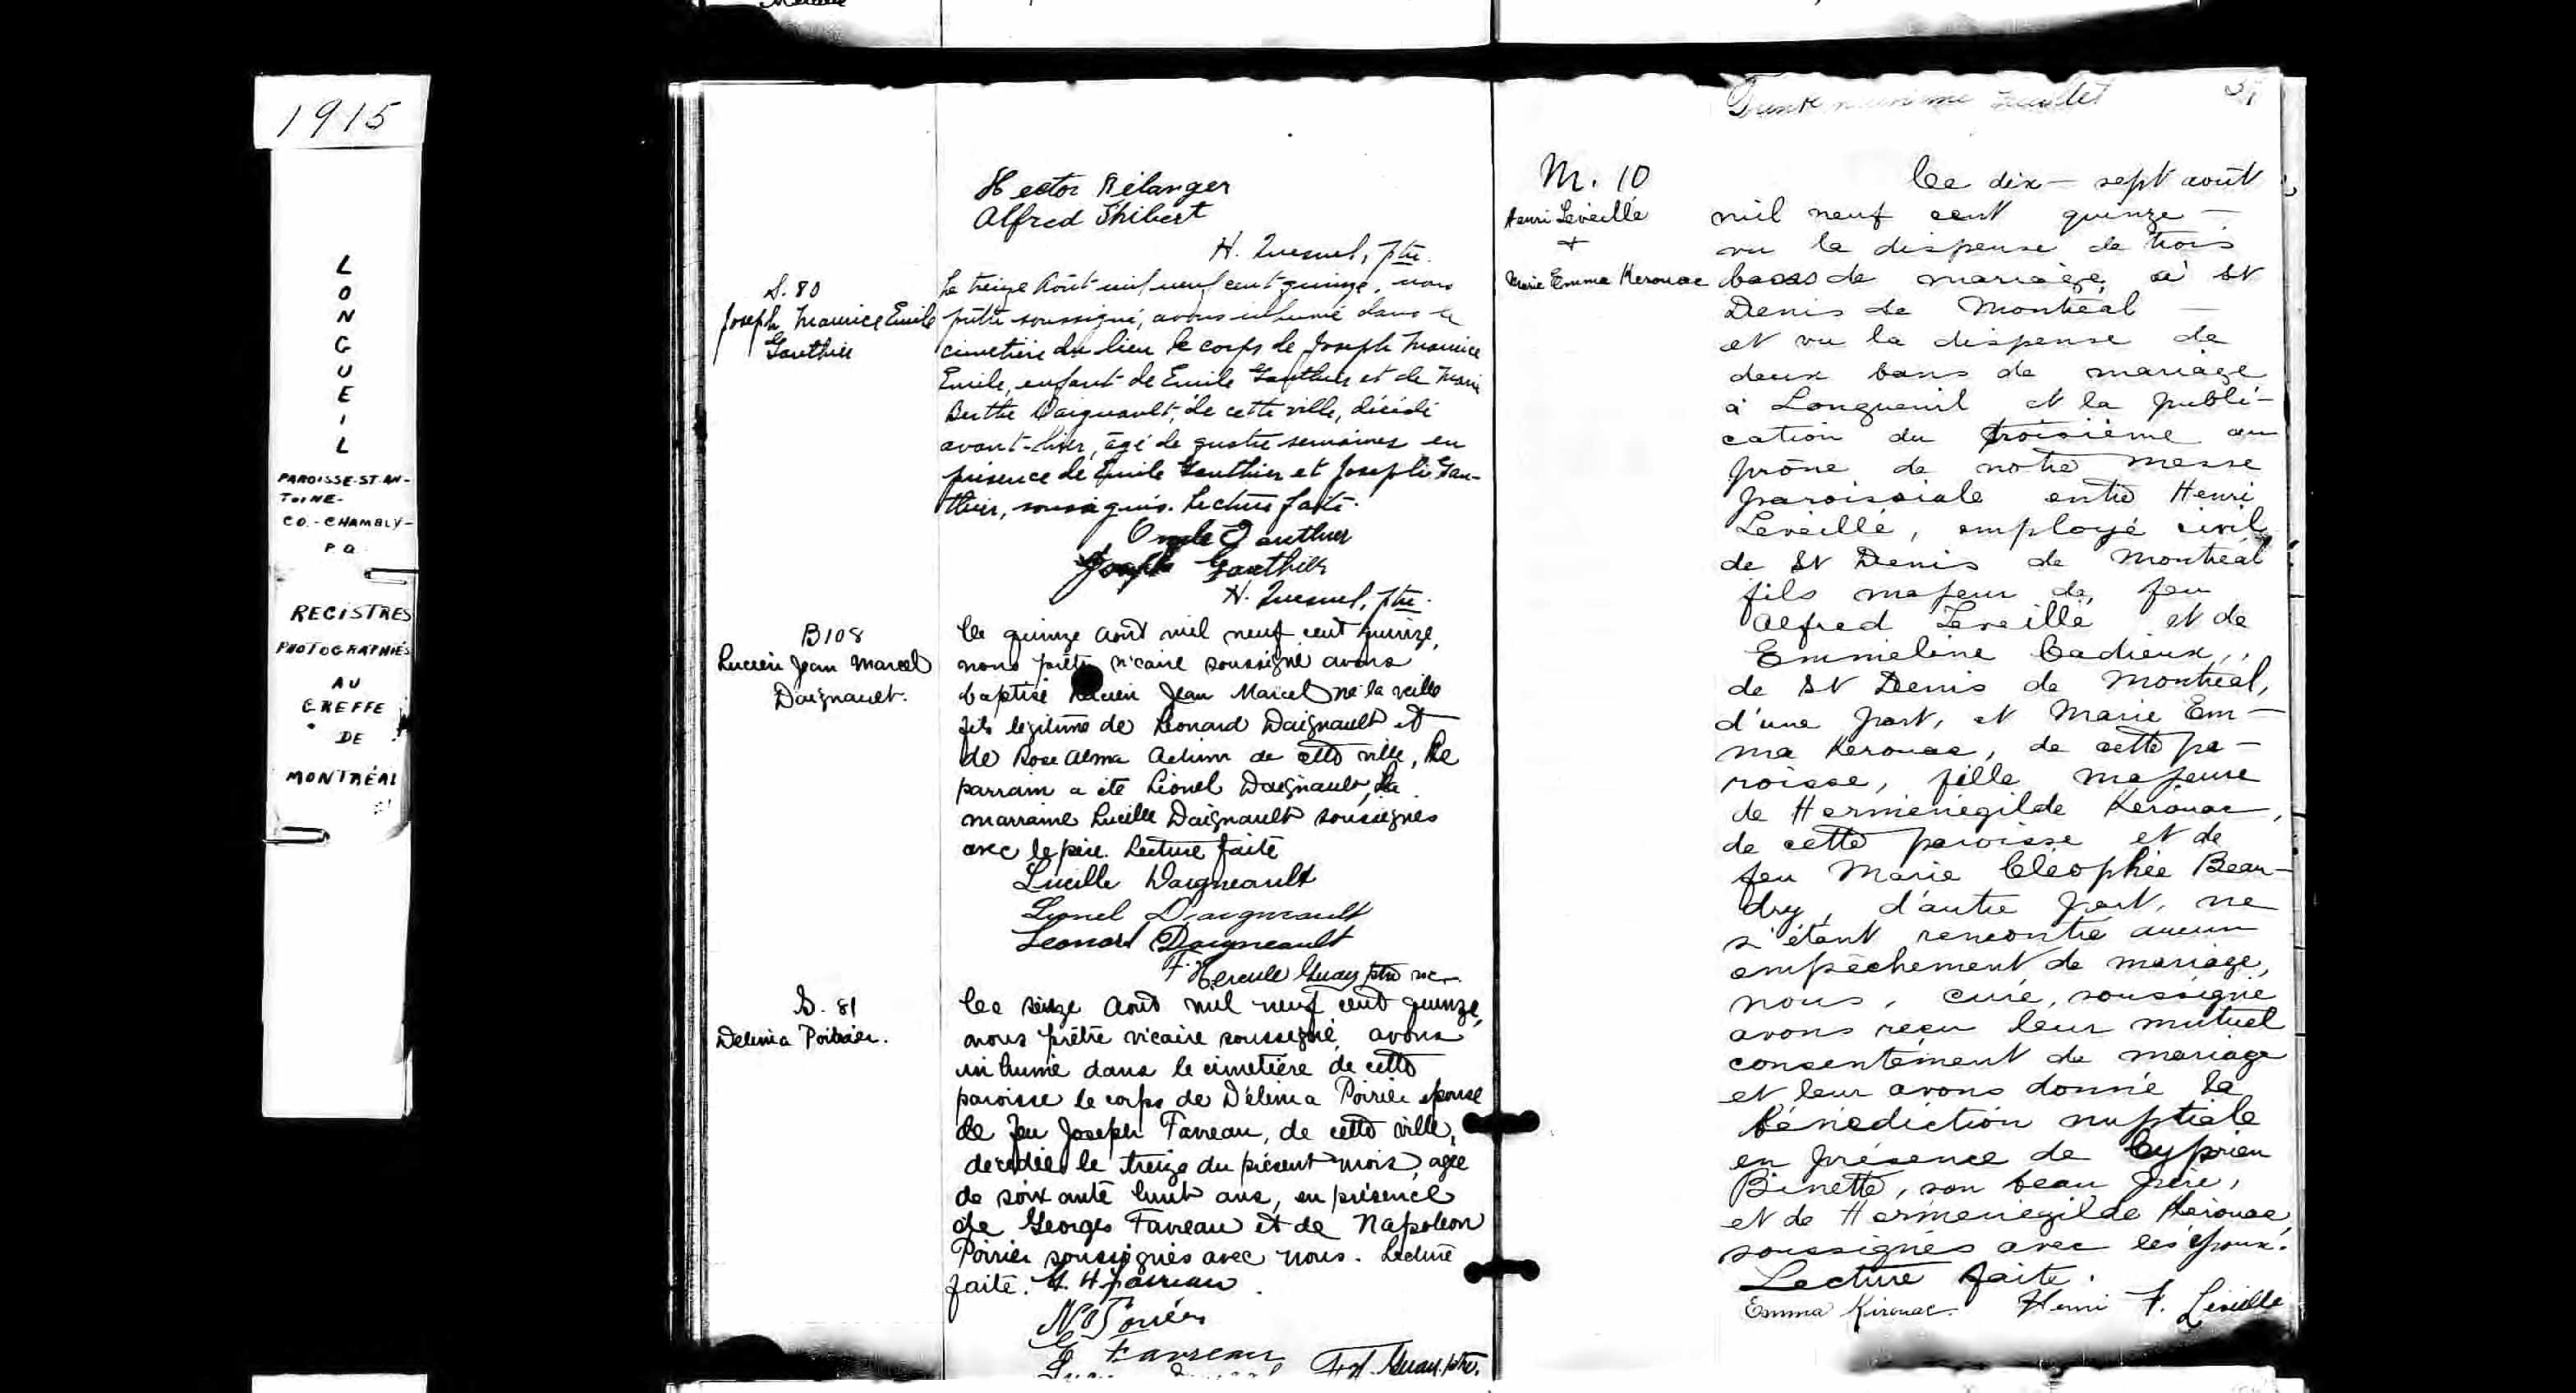 1915
LONGUEUIL
PAROISSE-ST-AN-
TOINE-
CO.-CHAMBLY-
P.Q.
REGISTRES
PHOTOGRAPHIÉS
AU
GREFFE
DE
MONTRÉAL
Hector Bélanger
Alfred Thibert
H. Quesnel, ptre.
S. 80
Joseph Maurice Emile
Gauthier
Le treize Août mil neuf cent quinze, nous
prêtre soussigné, avons inhumé dans le
cimetière du lieu le corps de Joseph Maurice
Emile, enfant de Emile Gauthier et de Marie
Berthe Daignault, de cette ville, décédé
avant-hier, âgé de quatre semaines en
présence de Emile Gauthier et Joseph Gau-
thier, soussignés. Lecture faite.
Gauthier
Joseph Gauthier
H. Quesnel, ptre.
B108
Lucien Jean Marcel
Daignault.
Ce quinze août mil neuf cent quinze,
nous prêtre vicaire soussigné avons
baptisé Lucien Jean Marcel né la veille
fils légitime de Léonard Daignault et
de Rose Alma Achim de cette ville, Le
parrain a été Lionel Daignault, La
marraine Lucille Daignault soussignés
avec le père. Lecture faite
Lucille Daigneault
Lionel Daigneault
Leonard Daigneault
F. Hercule Guay ptre vic.
S. 81
Délima Poirier.
Ce seize Août mil neuf cent quinze,
nous prêtre vicaire soussigné, avons
inhumé dans le cimetière de cette
paroisse le corps de Délima Poirier épouse
de feu Joseph Favreau, de cette ville,
décédée le treize du présent mois, agée
de soixante huit ans, en présence
de Georges Favreau et de Napoléon
Poirier soussignés avec nous. Lecture
faite. G. H. Favreau
N. Poirier
Favreau
F. H. Guay, ptre.
Trente neuvième feuillet
M. 10
Henri Léveillé
+
Marie Emma Kerouac
Ce dix-sept août
mil neuf cent quinze —
vu la dispense de trois
bans de mariage à St
Denis de Montréal —
et vu la dispense de
deux bans de mariage
à Longueuil et la publi-
cation du troisième au
prône de notre messe
paroissiale entre Henri
Léveillé, employé civil,
de St Denis de Montréal
fils majeur de feu
Alfred Léveillé et de
Emmeline Cadieux,
de St Denis de Montréal,
d'une part, et Marie Em-
ma Kerouac, de cette pa-
roisse, fille majeure
de Herménégilde Kérouac,
de cette paroisse et de
feu Marie Cléophée Beau-
dry, d'autre part, ne
s'étant rencontré aucun
empêchement de mariage,
nous, curé, soussigné
avons reçu leur mutuel
consentement de mariage
et leur avons donné la
bénédiction nuptiale
en présence de Cyprien
Binette, son beau frère,
et de Herménégilde Kérouac,
soussignés avec les époux.
Lecture faite.
Emma Kirouac. Henri F. Léveillé